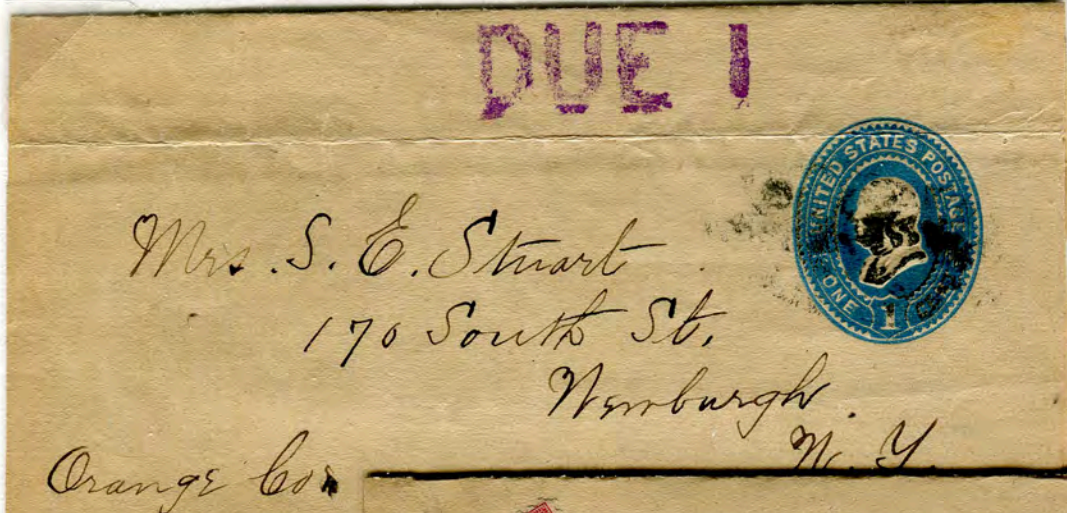 DUE 1
UNITED STATES POSTAGE
ONE 1
Mrs. S. E. Stuart
170 South St.
Newburgh.
N. Y.
Orange Co.